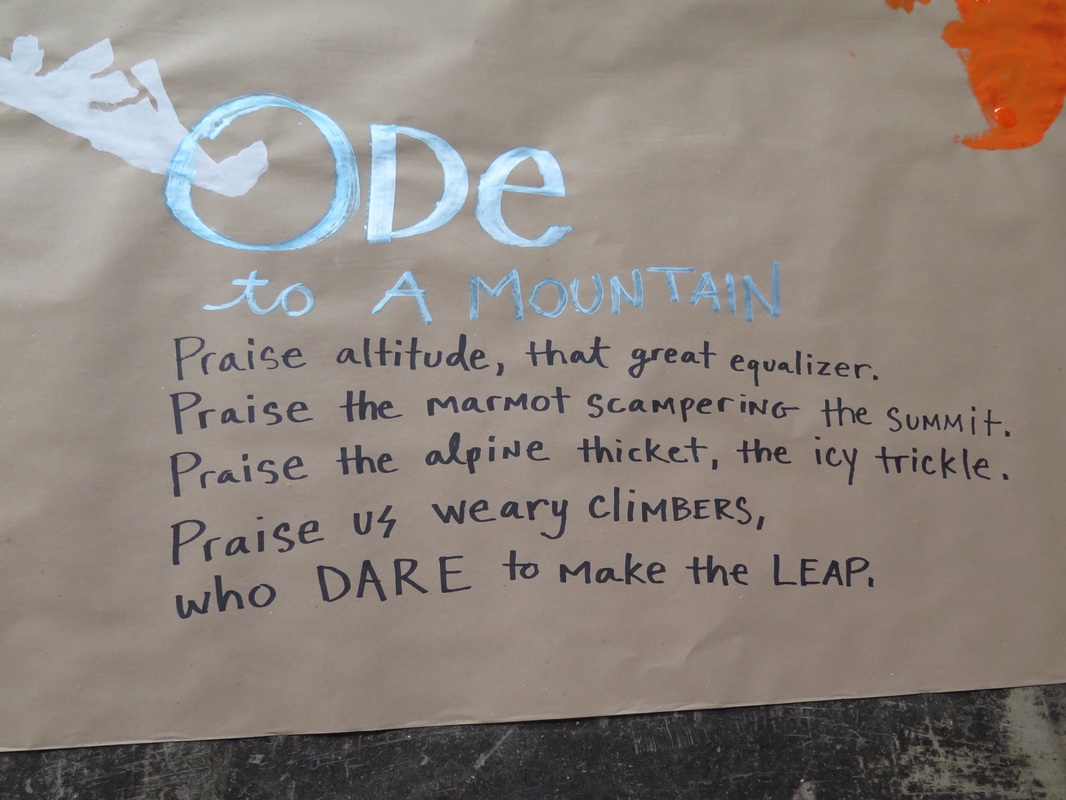 Ode
to A MOUNTAIN
Praise altitude, that great equalizer.
Praise the marmot scampering the summit.
Praise the alpine thicket, the icy trickle.
Praise us weary cliMBERS,
who DARE to make the LEAP.